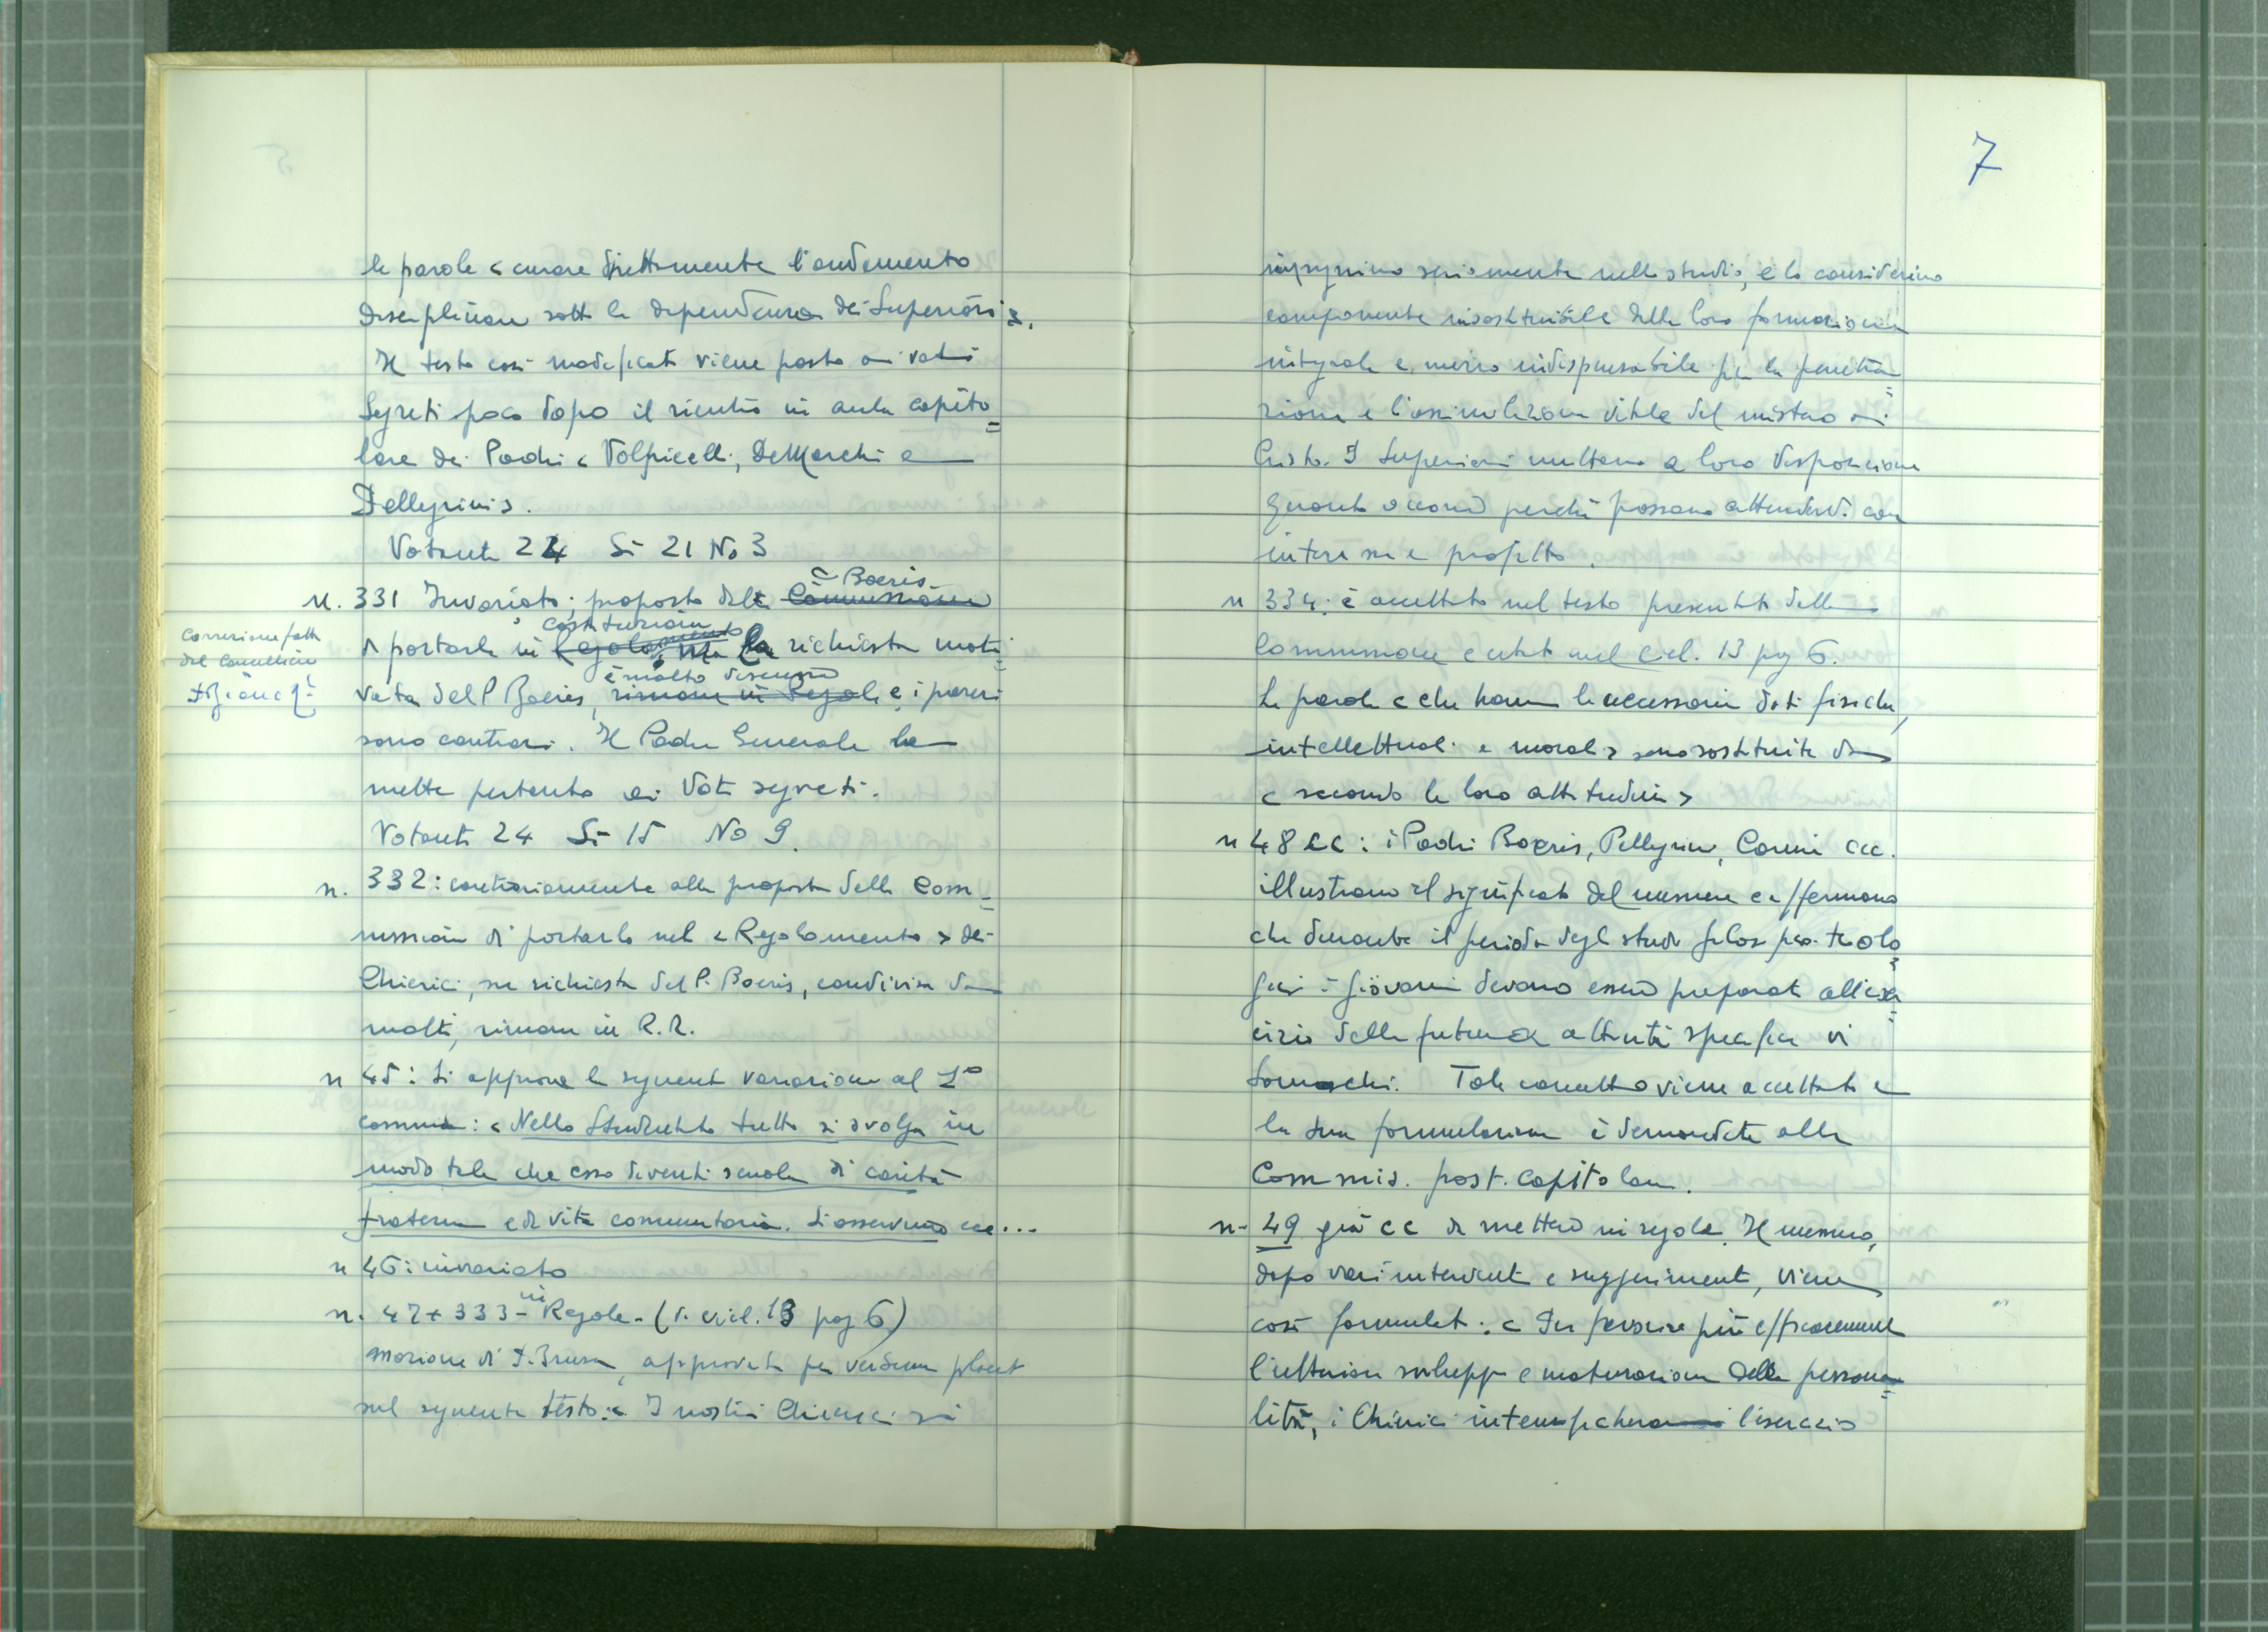 le parole < curare direttamente l'andamento
disciplinare sotto la dipendenza dei Superiori >.
Il testo così modificato viene posto ai voti
segreti poco dopo il rientro in aula capito=
lare dei Padri < Volpicelli, De Marchi e
Pellegrini >.
Votanti 24 Si 21 No 3
c Boeris
n. 331 Invariato; proposta della Commissione
costituzioni
di portarlo in Regolamento, ma la richiesta moti=
è molto discussa
vata del P Boeris, rimane in Regole e i pareri
correzione fatta
dal Cancelliere
sono contrari. Il Padre Generale la
mette pertanto ai Voti segreti.
Votanti 24 Si 15 No 9.
n. 332: contrariamente alla proposta della Com=
missione di portarlo nel < Regolamento > dei
Chierici, su richiesta del P. Boeris, condivisa da
molti, rimane in R.R.
n 45: Si approva la seguente variazione al 2°
comma: < Nello Studentato tutto si svolga in
modo tale che esso diventi scuola di carità
fraterna e di vita comunitaria. Si osservino ecc...
n 46: invariato
in
n. 47 + 333 - Regole - (v. cicl. 13 pag 6)
mozione di P. Brusa, approvata per verbum placet
sul seguente testo: < I nostri Chierici si
7
impegnino seriamente nello studio, e lo considerino
componente insostituibile della loro formazione
integrale e mezzo indispensabile per la penetra=
zione e l'assimilazione vitale del mistero di
Cristo. I Superiori mettano a loro disposizione
quanto occorre perché possano attendervi con
interesse e profitto.
n 334: è accettato nel testo presentato dalla
Commissione e citato nel cicl. 13 pag 6.
Le parole < che hanno le necessarie doti fisiche,
intellettuali e morali > sono sostituite da
< secondo le loro attitudini >
n 48 CC: i Padri Boeris, Pellegrini, Corini ecc.
illustrano il significato del numero e affermano
che durante il periodo degli studi filosofico-teolo=
gici i giovani devono essere preparati all'eser=
cizio della futura attività specifica di
Somaschi. Tale concetto viene accettato e
la sua formulazione è demandata alla
Commis. post. capitolare.
n- 49 già CC da mettere in regole. Il numero,
dopo vari interventi e suggerimenti, viene
così formulato: < Per favorire più efficacemente
l'ulteriore sviluppo e maturazione della persona=
lità, i Chierici l'esercizio